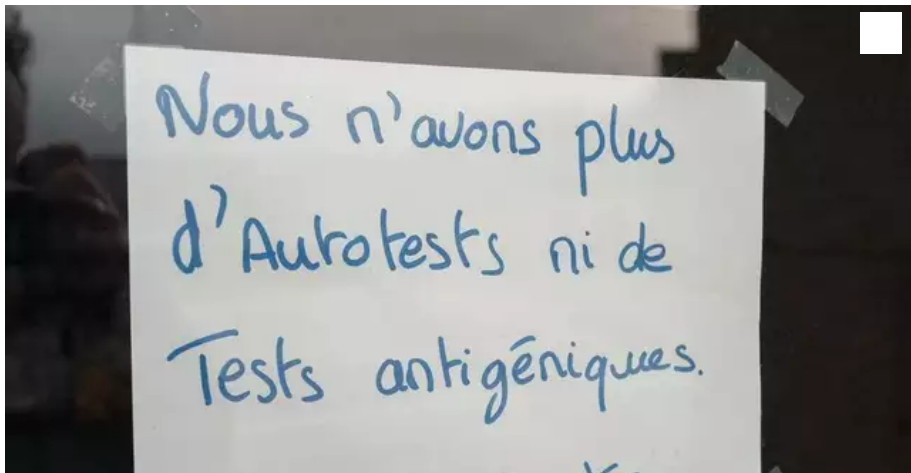 Nous n'avons plus
d'Autotests ni de
Tests antigéniques.